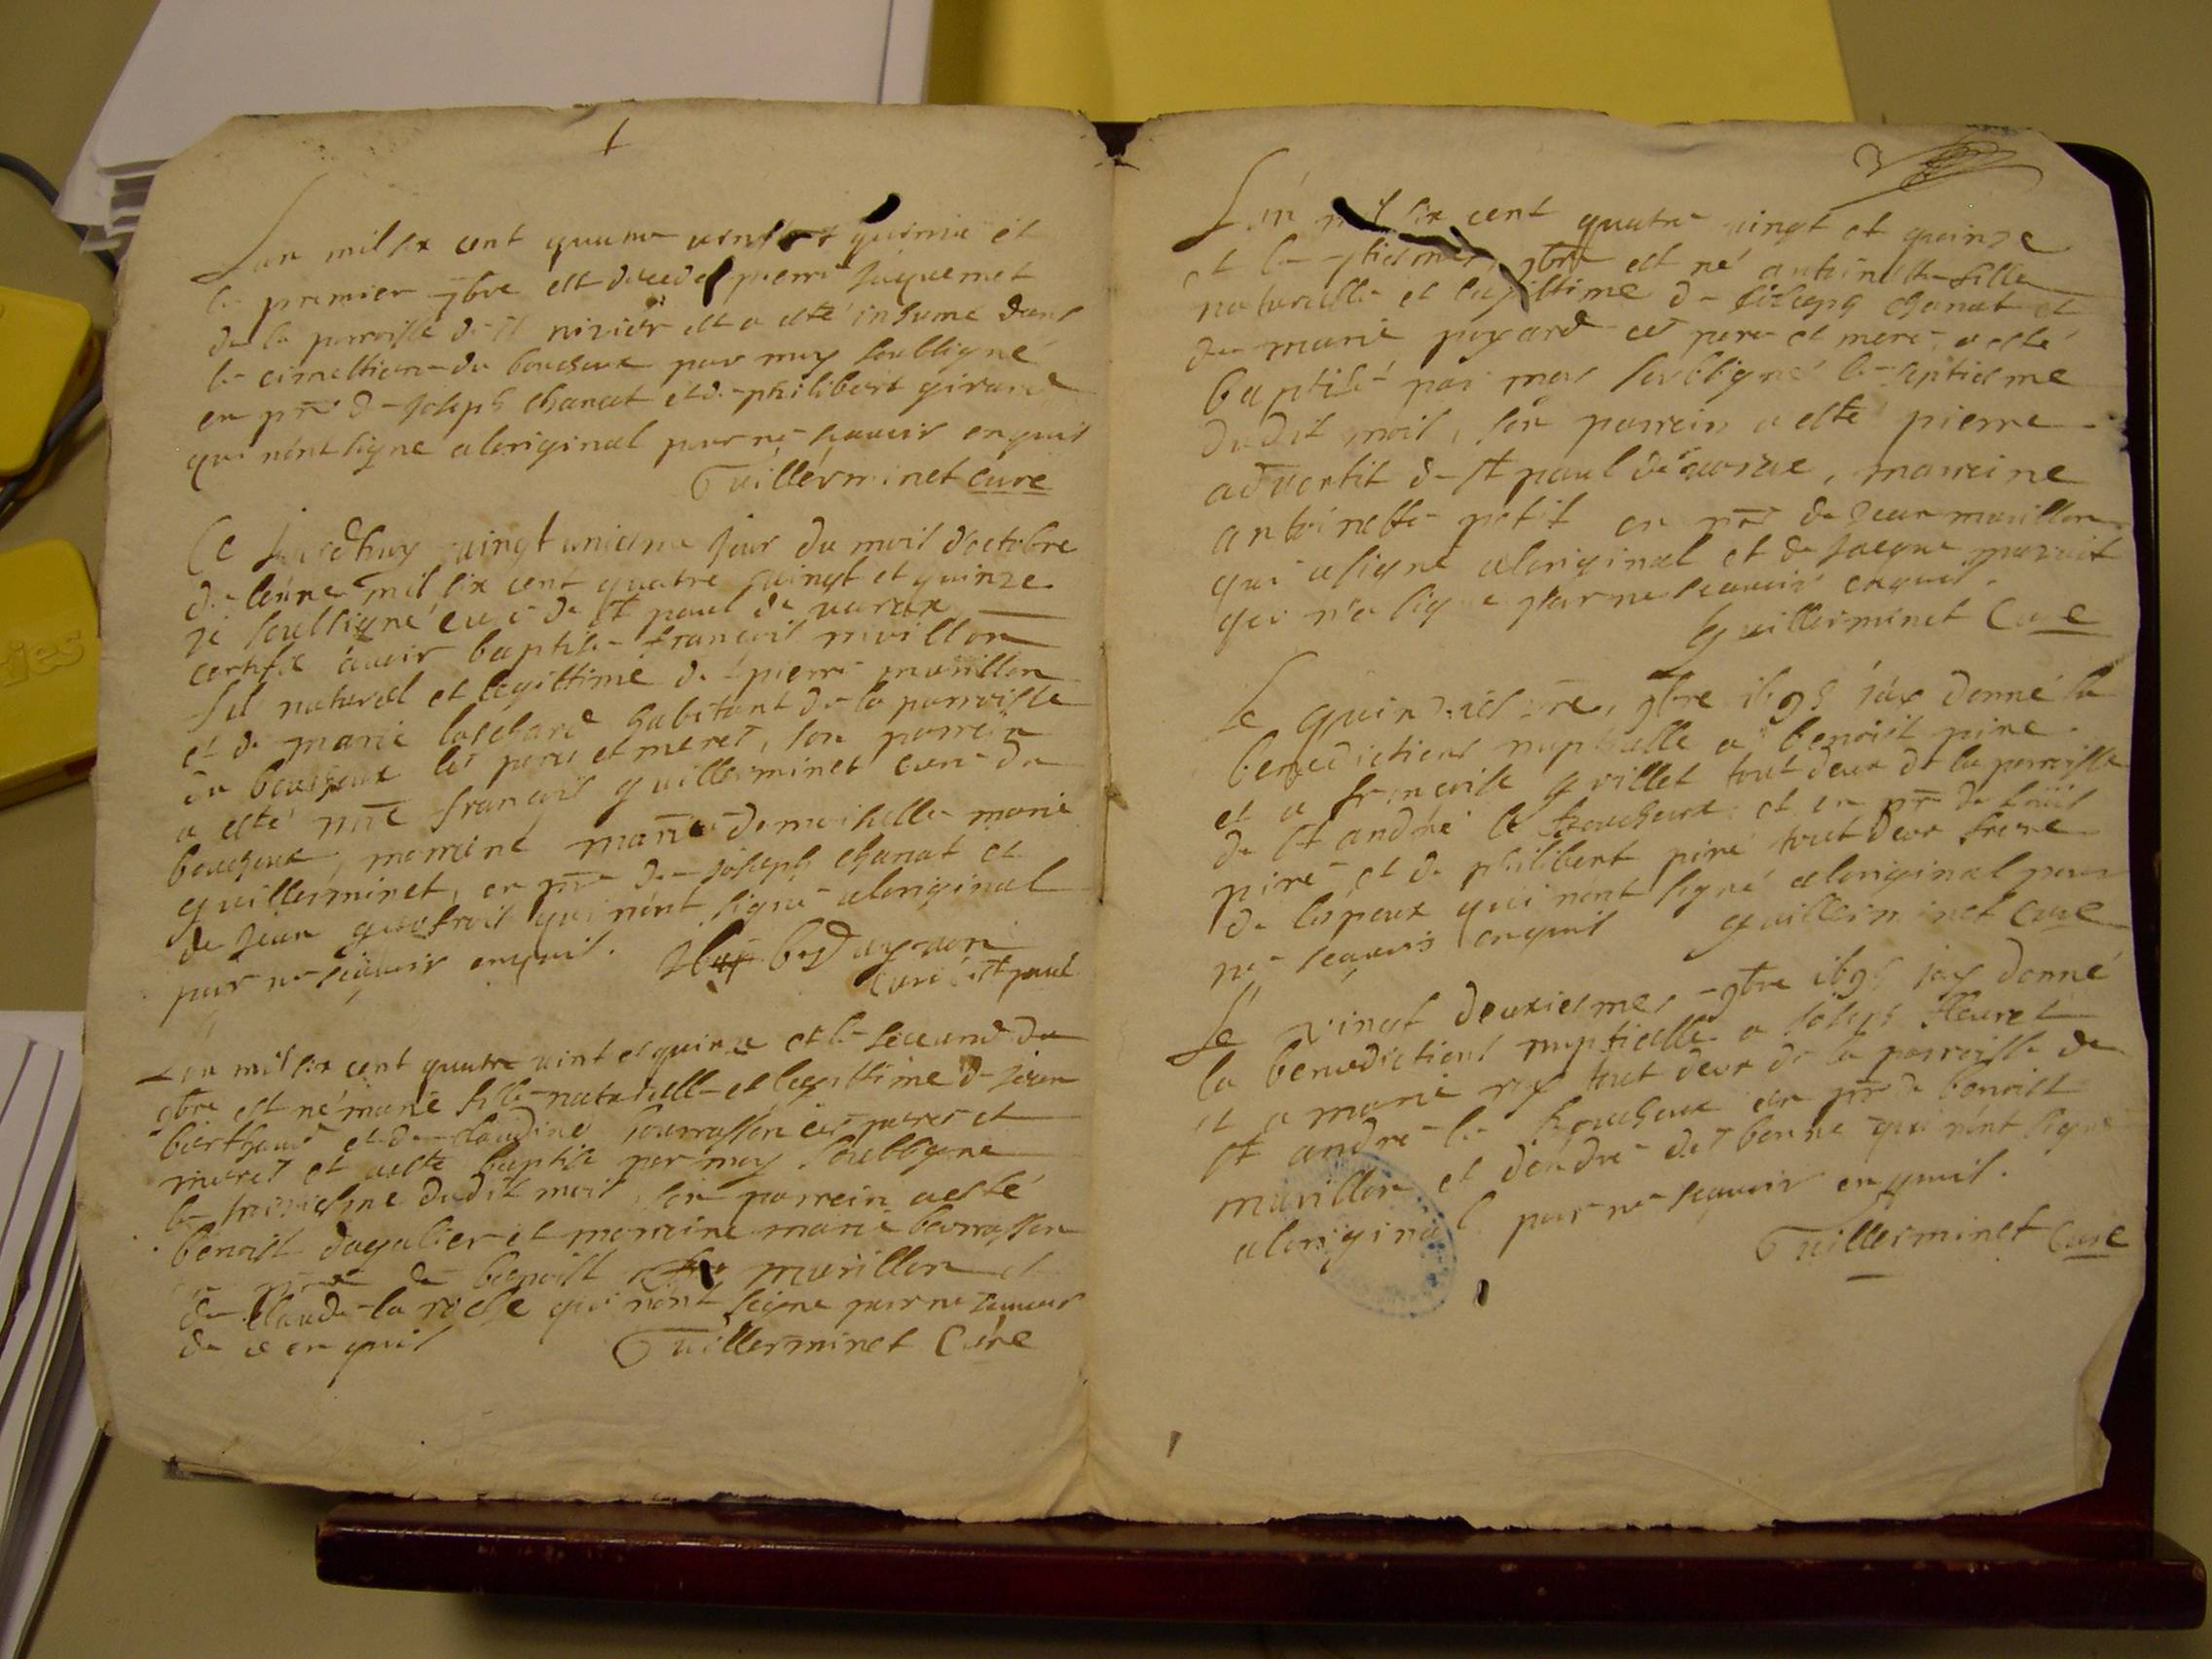 Lan mil six cent quatre vingt quinze et
le premier 9bre est decedé pierre Jaquemet
de la parroisse de st nizier et a esté inhumé dans
le cimettiere du bouchoux par moy soubsigné
en pnce de Joseph chanat et de philibert girard
qui nont signe aloriginal pour ne scavoir enquis
Guillerminet Cure
Ce jourdhuy vingt uniesme jour du mois doctobre
de lanne mil six cent quatre vingt et quinze
je soussigné curé de st paul de varax
certifie avoir baptise françois mivillon
fils naturel et legittime de pierre
et de marie habitant de la parroisse
du bouchoux les peres et meres, son parrein
a esté mre françois guillerminet curé du
bouchoux, marreine demoiselle marie
guillerminet, en pnce de Joseph chanat et
de jean qui nont signé aloriginal
pour ne scavoir enquis.
curé de st paul
Lan mil six cent quatre vint et quinze et le second du
9bre est né marie fille naturelle et legittime de jean
berthaud et de claudine ces peres et
meres et a esté baptise par moy soubsigne
le troisiesme dudit mois, son parrein a esté
benoist dagalier et marreine marie
en pnce de benoist murillon et
de claude la roche qui nont signe pour ne scavoir
de ce enquis Guillerminet Cure
3
Lan mil six cent quatre vingt et quinze
et le 9bre est né antoinette fille
naturelle et legittime de Joseph chanat et
de marie pogard ces pere et mere, a esté
baptisé par moy soubsigné le septiesme
dudit mois, son parrein a esté pierre
advertit de st paul de varax, marreine
antoinette petit en pnce de Jean murillon
qui a signé aloriginal et de Jacque
qui na signe pour ne scavoir enquis.
Guillerminet Cure
Le quinziesme, 9bre 1695 jay donné la
benediction nuptialle a benoist piné
et a françoise grillet tout deux de la parroisse
de st andré le bouchoux et en pnce de louis
piné et de philibert piné tout deux frere
de lespoux qui nont signé aloriginal pour
ne scavoir enquis guillerminet Cure
Le vingt deuxiesme, 9bre 1695 jay donné
la benediction nuptialle a Joseph fleuret
et a marie rey tout deux de la parroisse de
st andré le bouchoux en pnce de benoist
murillon et dandré qui nont signe
aloriginal pour ne scavoir enquis.
Guillerminet Cure